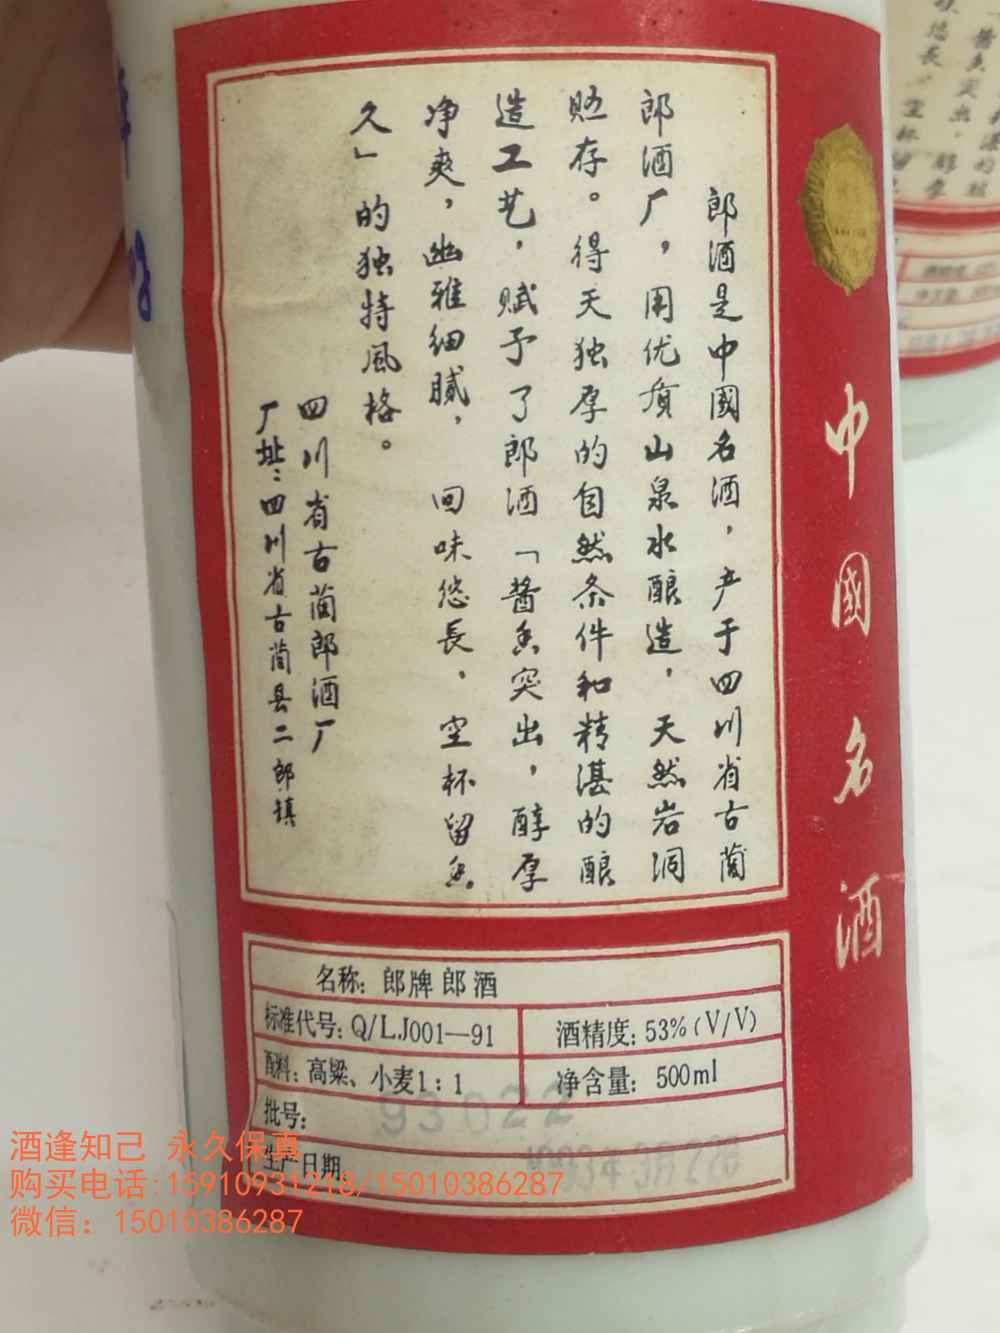 郎酒是中國名酒，产于四川省古蔺
郎酒厂，用优质山泉水酿造，天然岩洞
贮存。得天独厚的自然条件和精湛的酿
造工艺，赋予了郎酒「酱香突出，醇厚
净爽，幽雅细腻，回味悠長，空杯留香
久」的独特風格。
四川省古蔺郎酒厂
厂址：四川省古蔺县二郎镇
中國名酒
名称：郎牌郎酒
标准代号：Q/LJ001—91
酒精度：53%(V/V)
配料：高粱、小麦1：1
净含量：500ml
批号：
93022
生产日期
1993年3月22日
酒逢知己 永久保真
购买电话:15910931218/15010386287
微信：15010386287